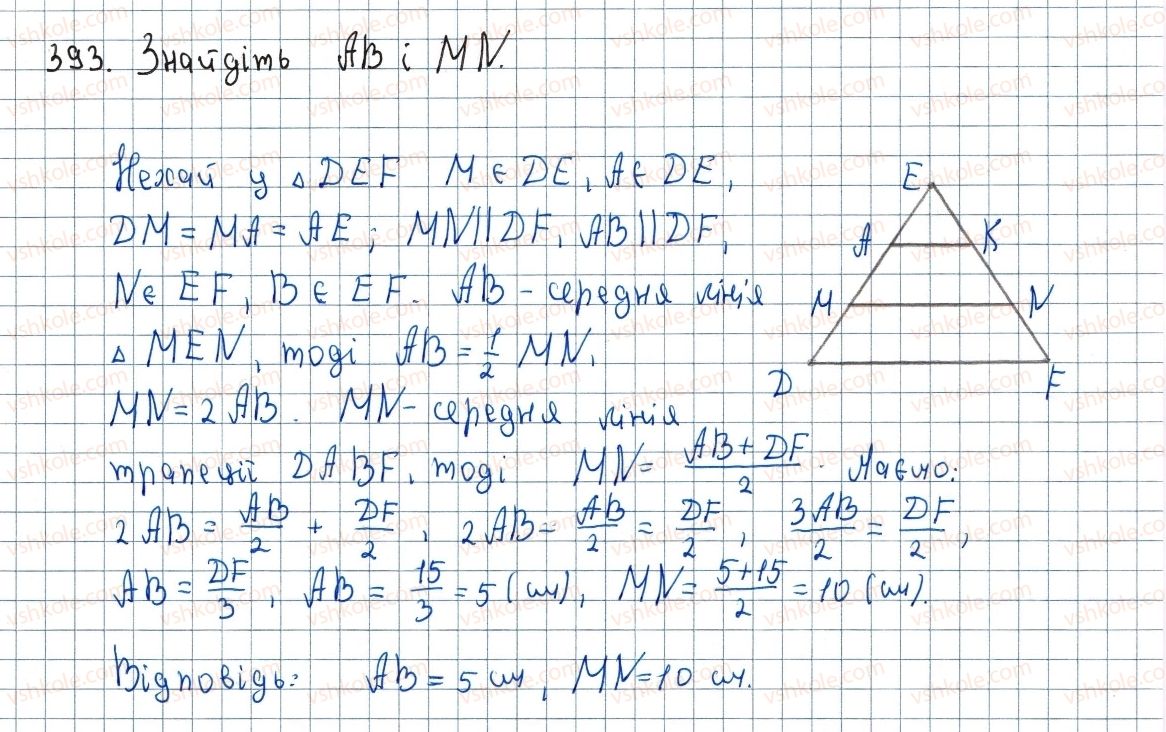 393. Знайдіть AB і MN.
Нехай у △ DEF M ∈ DE, A ∈ DE,
DM = MA = AE; MN || DF, AB || DF,
N ∈ EF, B ∈ EF. AB - середня лінія
△ MEN, тоді AB = 1/2 MN.
MN = 2 AB. MN - середня лінія
трапеції DABF, тоді MN = (AB + DF)/2. Маємо:
2 AB = AB/2 + DF/2, 2 AB - AB/2 = DF/2, 3AB/2 = DF/2,
AB = DF/3, AB = 15/3 = 5 (см), MN = (5+15)/2 = 10 (см).
Відповідь: AB = 5 см, MN = 10 см.
E
A K
M N
D F
vshkole.com